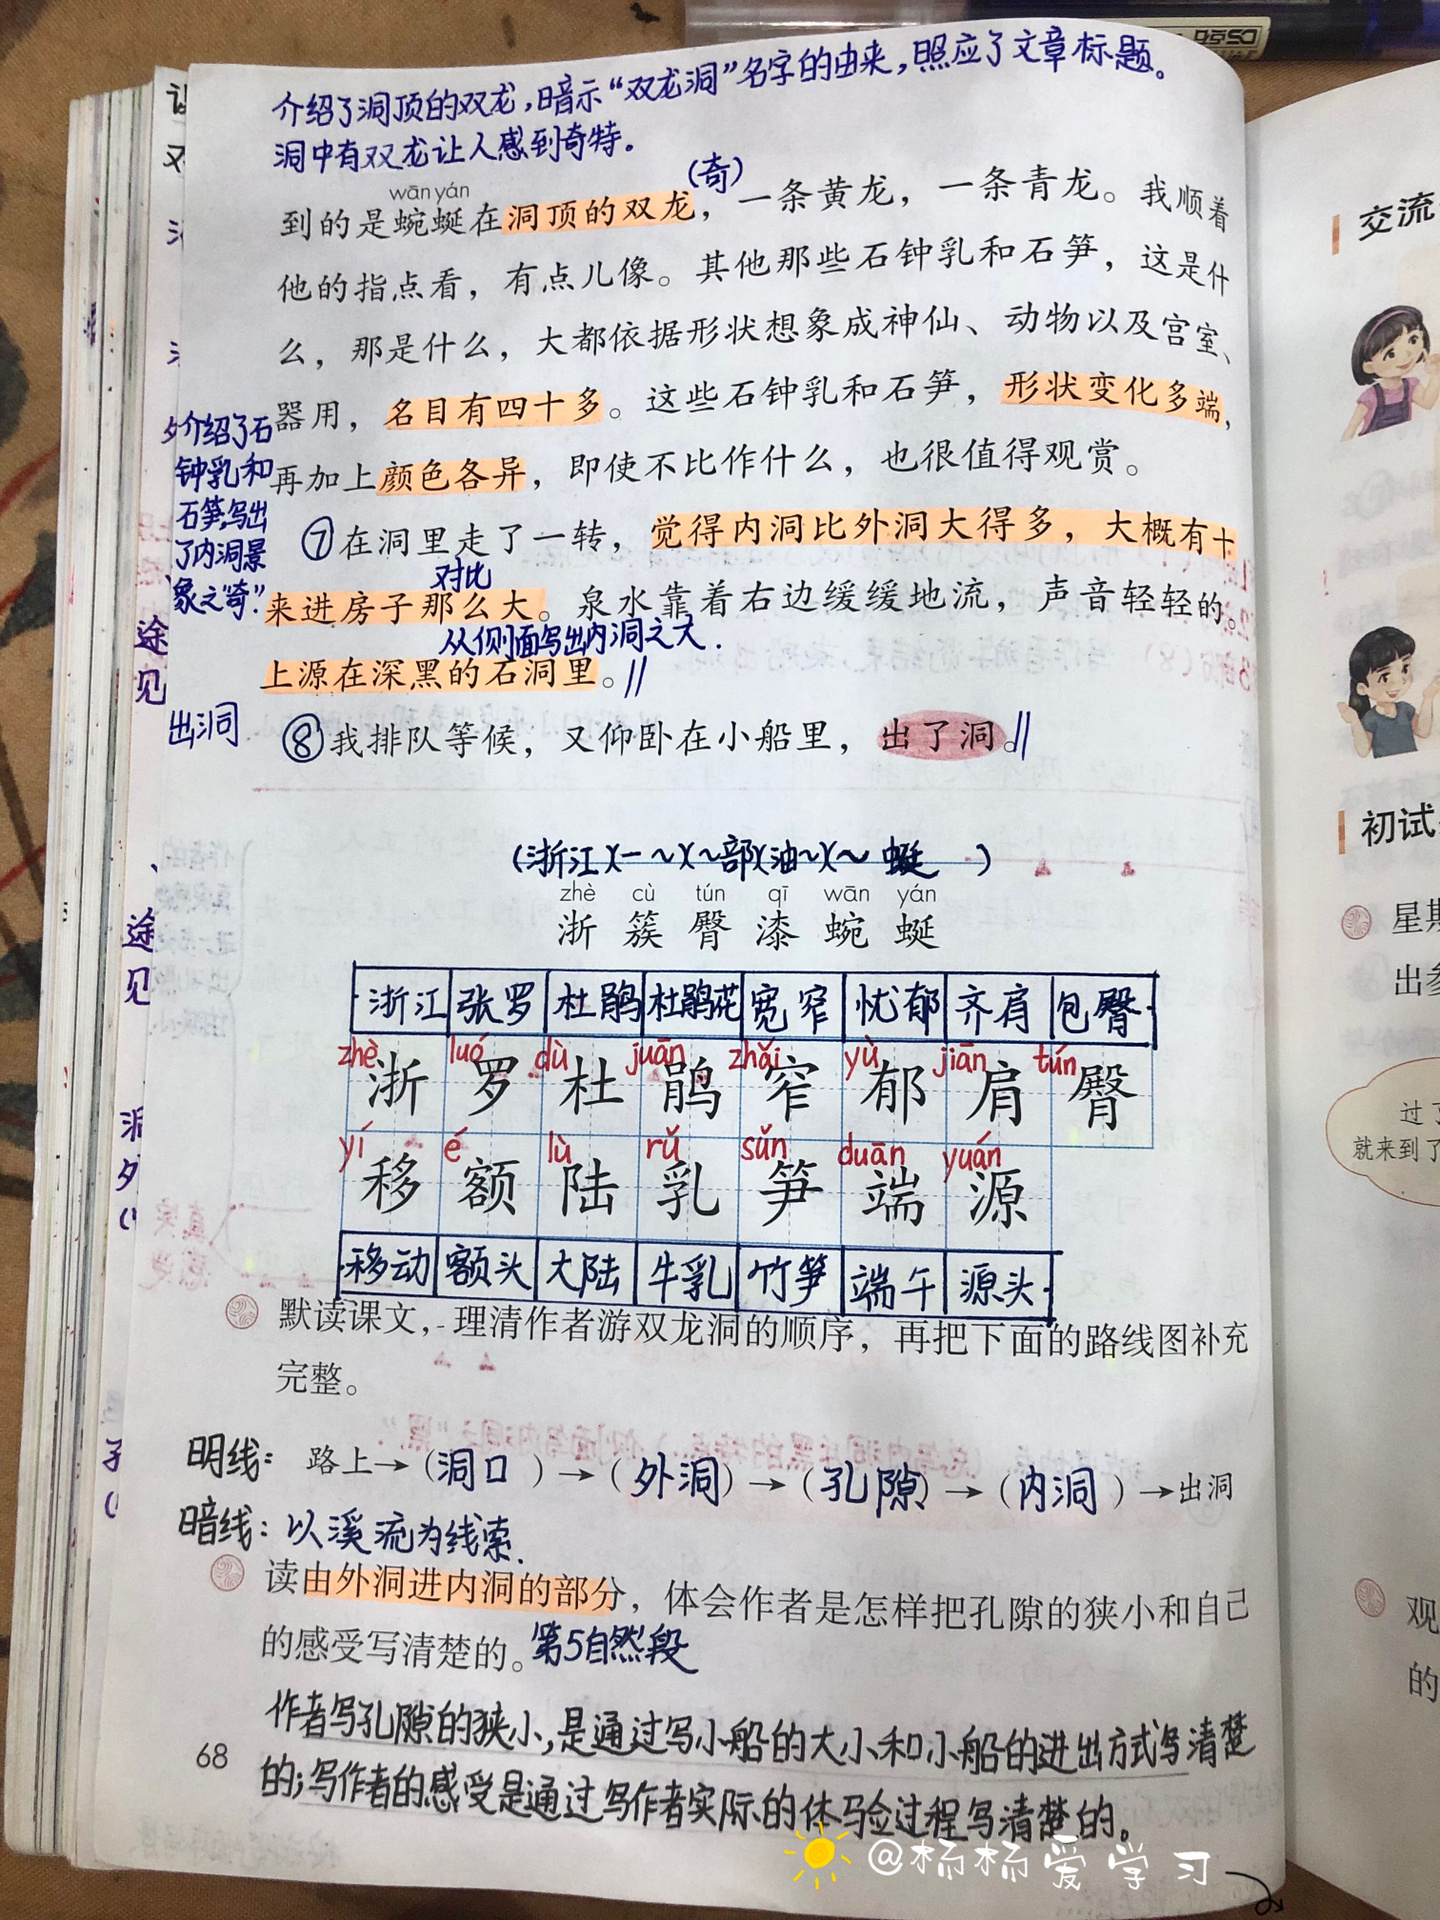 介绍了洞顶的双龙,暗示“双龙洞”名字的由来,照应了文章标题。
洞中有双龙让人感到奇特。
(奇)
wān yán
到的是蜿蜒在洞顶的双龙，一条黄龙，一条青龙。我顺着
他的指点看，有点儿像。其他那些石钟乳和石笋，这是什
么，那是什么，大都依据形状想象成神仙、动物以及宫室、
器用，名目有四十多。这些石钟乳和石笋，形状变化多端，
再加上颜色各异，即使不比作什么，也很值得观赏。
介绍了石
钟乳和
石笋,写出
了内洞景
象之“奇”.
⑦在洞里走了一转，觉得内洞比外洞大得多，大概有十
对比
来进房子那么大。泉水靠着右边缓缓地流，声音轻轻的。
从侧面写出内洞之大.
上源在深黑的石洞里。//
途
见
出洞
⑧我排队等候，又仰卧在小船里，出了洞。//
(浙江)(一~)(~部)(油~)(~蜒)
zhè cù tún qī wān yán
浙 簇 臀 漆 蜿 蜒
浙江 张罗 杜鹃 杜鹃花 宽窄 忧郁 齐肩 包臀
zhè luó dù juān zhǎi yù jiān tún
浙 罗 杜 鹃 窄 郁 肩 臀
yí é lù rǔ sǔn duān yuán
移 额 陆 乳 笋 端 源
移动 额头 大陆 牛乳 竹笋 端午 源头
途
见
默读课文，理清作者游双龙洞的顺序，再把下面的路线图补充
完整。
明线: 路上→(洞口)→(外洞)→(孔隙)→(内洞)→出洞
暗线: 以溪流为线索.
读由外洞进内洞的部分，体会作者是怎样把孔隙的狭小和自己
的感受写清楚的。第5自然段
作者写孔隙的狭小,是通过写小船的大小和小船的进出方式写清楚
的;写作者的感受是通过写作者实际的体验过程写清楚的。
68
@杨杨爱学习
交流
初试
星期
出参
过了
就来到了
观
的